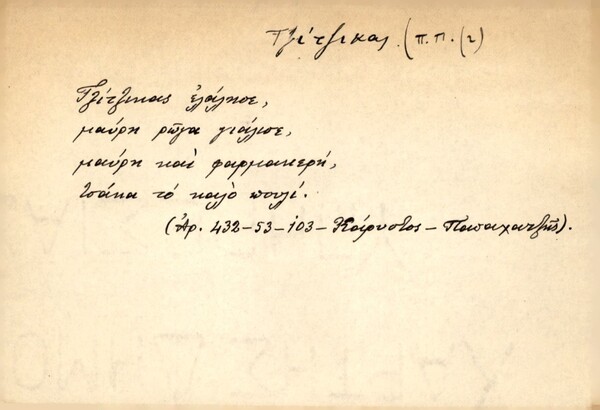 Τζίτζικας. (π.π. (2)
Τζίτζικας ἐλάλησε,
μαύρη ρῶγα γυάλισε,
μαύρη καὶ φαρμακερή,
τσάκα τό καλὸ πουλί.
(Ἀρ. 432-53-103-Κάρυστος-Παπαχατζῆς).